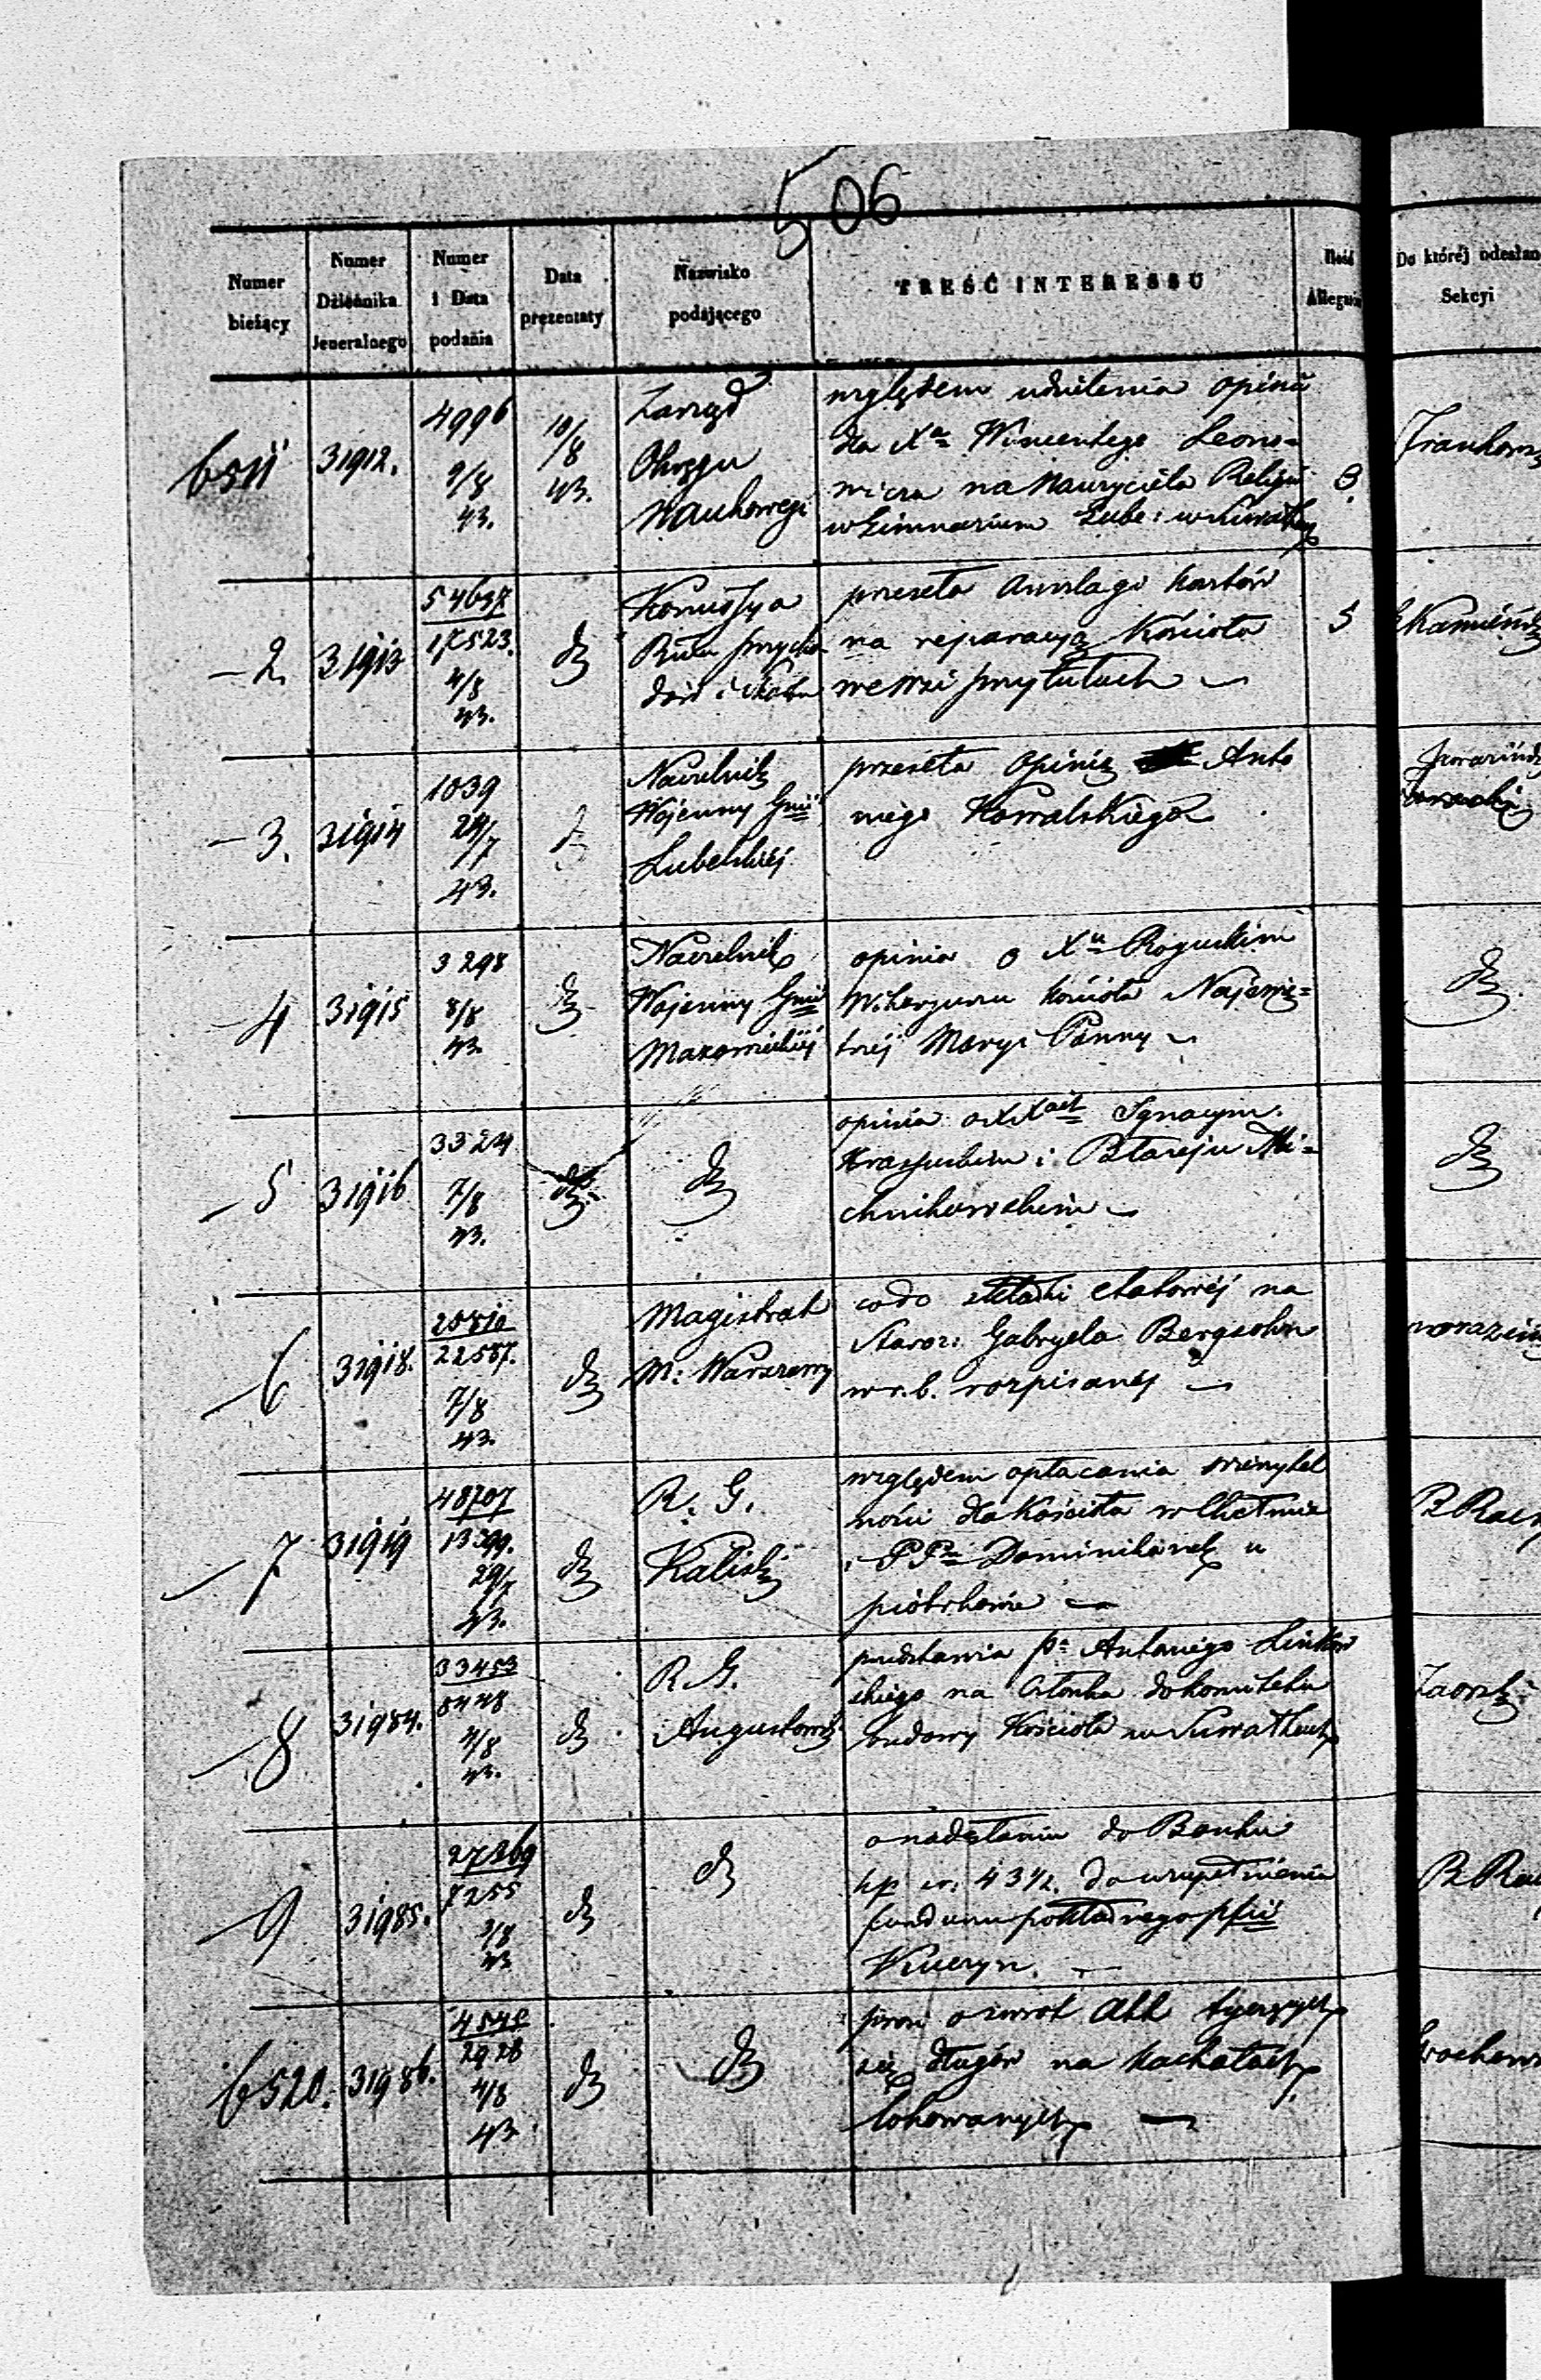 506
Numer bieżący
Numer Dziennika Jeneralnego
Numer i Data podania
Data prezentaty
Nazwisko podającego
TREŚĆ INTERESSU
Ilość Allegatów
Do której odesłan
Sekcyi
6511
31912.
4996
9/8
43.
10/8
43.
Zarząd
Okręgu
Naukowego
względem udzielenia opinii
dla Xa Wincentego Leono=
wicza na Nauczyciela Religii
w Gimnazium Gube: w Suwałkach
3
2.
31913
54637
17523.
4/8
43.
d
Komissya
Rzdu przycho
dów i Skarbu
przesyła Anszlagi kosztów
na reparacyą Kościoła
we wsi Przytułach
5
3.
31914
1039
24/7
43.
d
Naczelnik
Wojenny Gnii
Lubelskiej
przesyła Opinię Anto
niego Kowalskiego
4
31915
3298
8/8
43.
d
Naczelnik
Wojenny Gnii
Mazowieckiej
opinia o Xu
Kościoła Najświę=
tszej Maryi Panny
d
5
31916
3324
7/8
43.
d
d
opinia o XXach Ignacym
i
d
6
31918.
22587.
7/8
43.
d
Magistrat
M: Warszawy
co do składki etatowej na
Staroz: Gabryela Bergsohn
w r. b. rozpisanej
7
31919
48707
13399.
29/7
43.
d
R. G.
Kalisk
względem opłacania wierzytel
ności dla Kościoła w Chełmie
i PP Dominikanek u
Piotrkowie
8
31984.
33453
8448
4/8
43.
d
R. G.
Augustows
przedstawia Pa Antoniego Linkow
skiego na Członka do komitetu
budowy Kościoła w Suwałkach
9
31985.
27269
7255
3/8
43
d
d
o nadesłaniu do Banku
43 1/2. do uzupełnienia
funduszu pokładnego pfii
Kuczyn.
6520.
31986.
4545
2928
4/8
43
d
d
prosi o zwrot Akt tyczących
się długów na kahałach
lokowanych